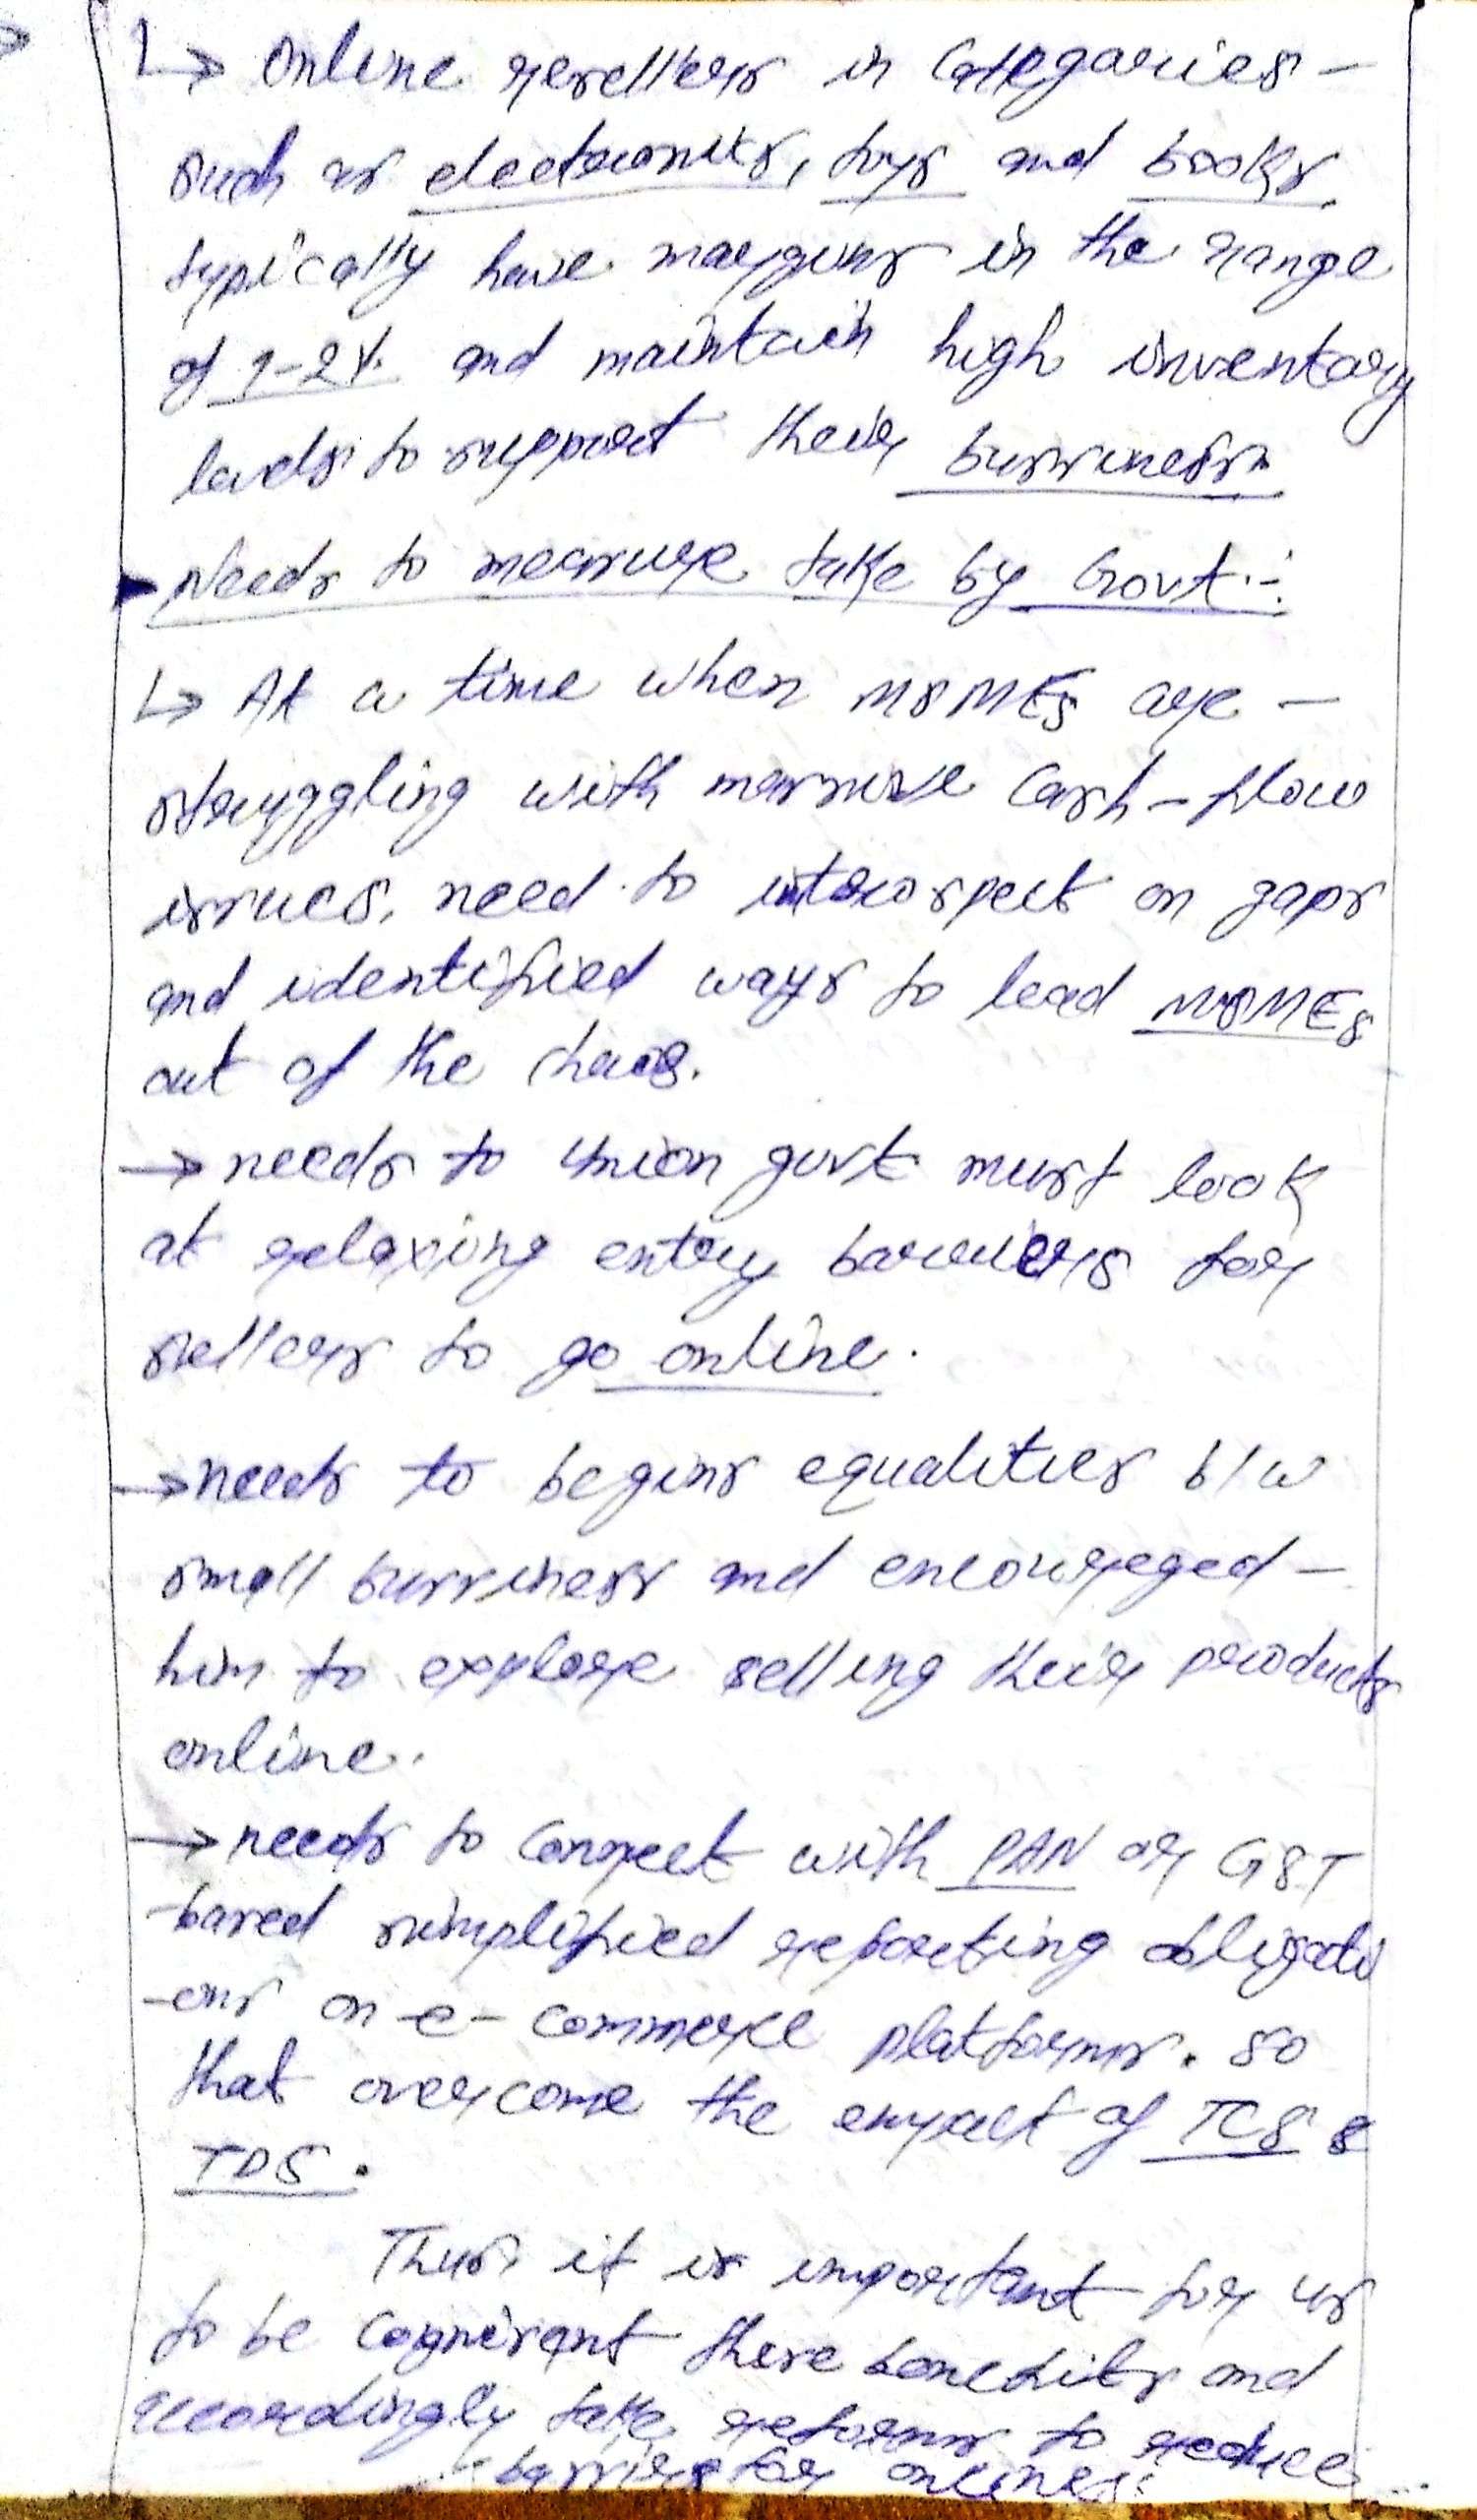 ↳ Online resellers in Categories -
such as electronics, toys and books
typically have margins in the range
of 1-2%. and maintain high inventory
levels to support their bussiness
Needs to measure take by Govt :-
↳ At a time when MSMEs are -
struggling with massive Cash-flow
issues, need to introspect on gaps
and identified ways to lead MSMEs
out of the chaos.
→ needs to Union govt must look
at relaxing entry barriers for
sellers to go online.
→ needs to begins equalities b/w
small bussiness and encouraged -
him to explore selling their products
online.
→ needs to connect with PAN or GST
-based simplified reporting obligati
-ons on e- commerce platforms. so
that overcome the empact of TCS &
TDS.
Thus it is important for us
to be cognisant these benefits and
accordingly take reforms to reduce
barriers for onliness